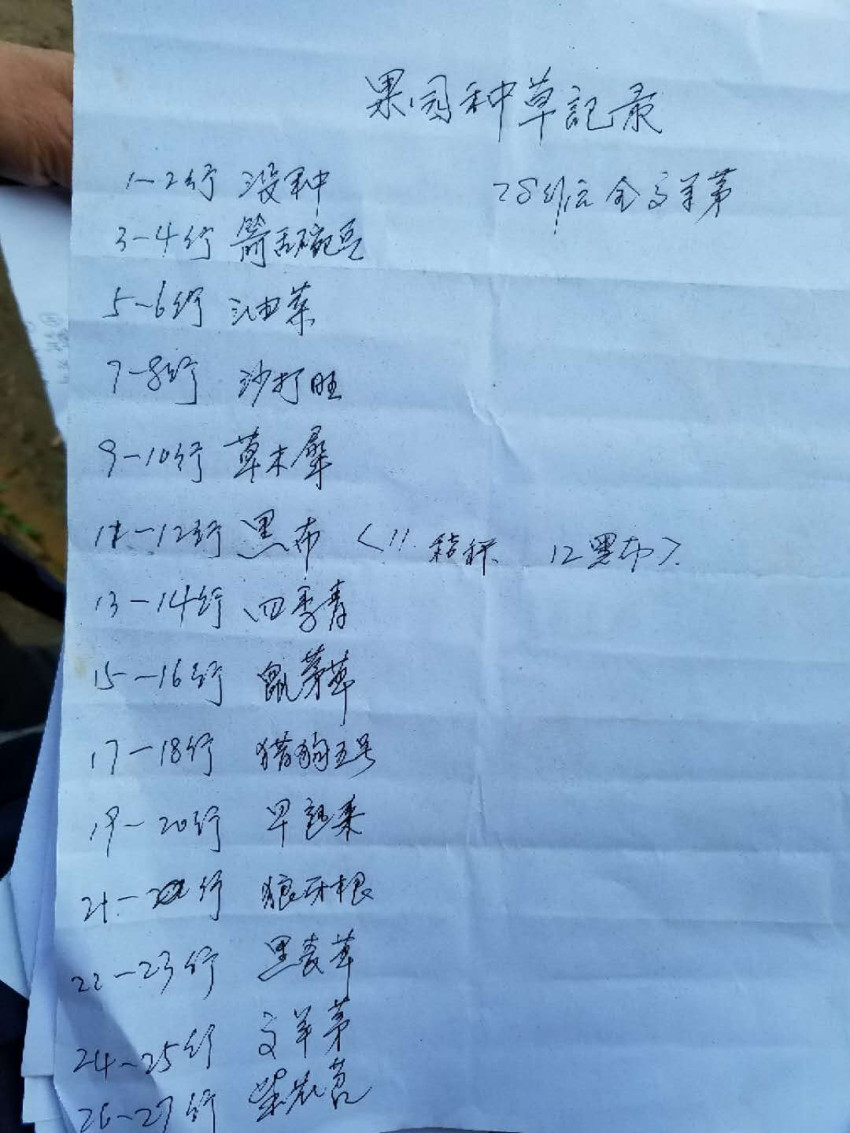 果园种草記录
1-2行 没种
28行后全高羊茅
3-4行 箭舌碗豆
5-6行 油菜
7-8行 沙打旺
9-10行 草木犀
11-12行 黑布 <11 秸秆 12黑布>.
13-14行 四季青
15-16行 鼠茅草
17-18行 猎狗五号
19-20行 早熟禾
21-行 狼牙根
22-23行 黑麦草
24-25行 高羊茅
26-27行 紫花苜